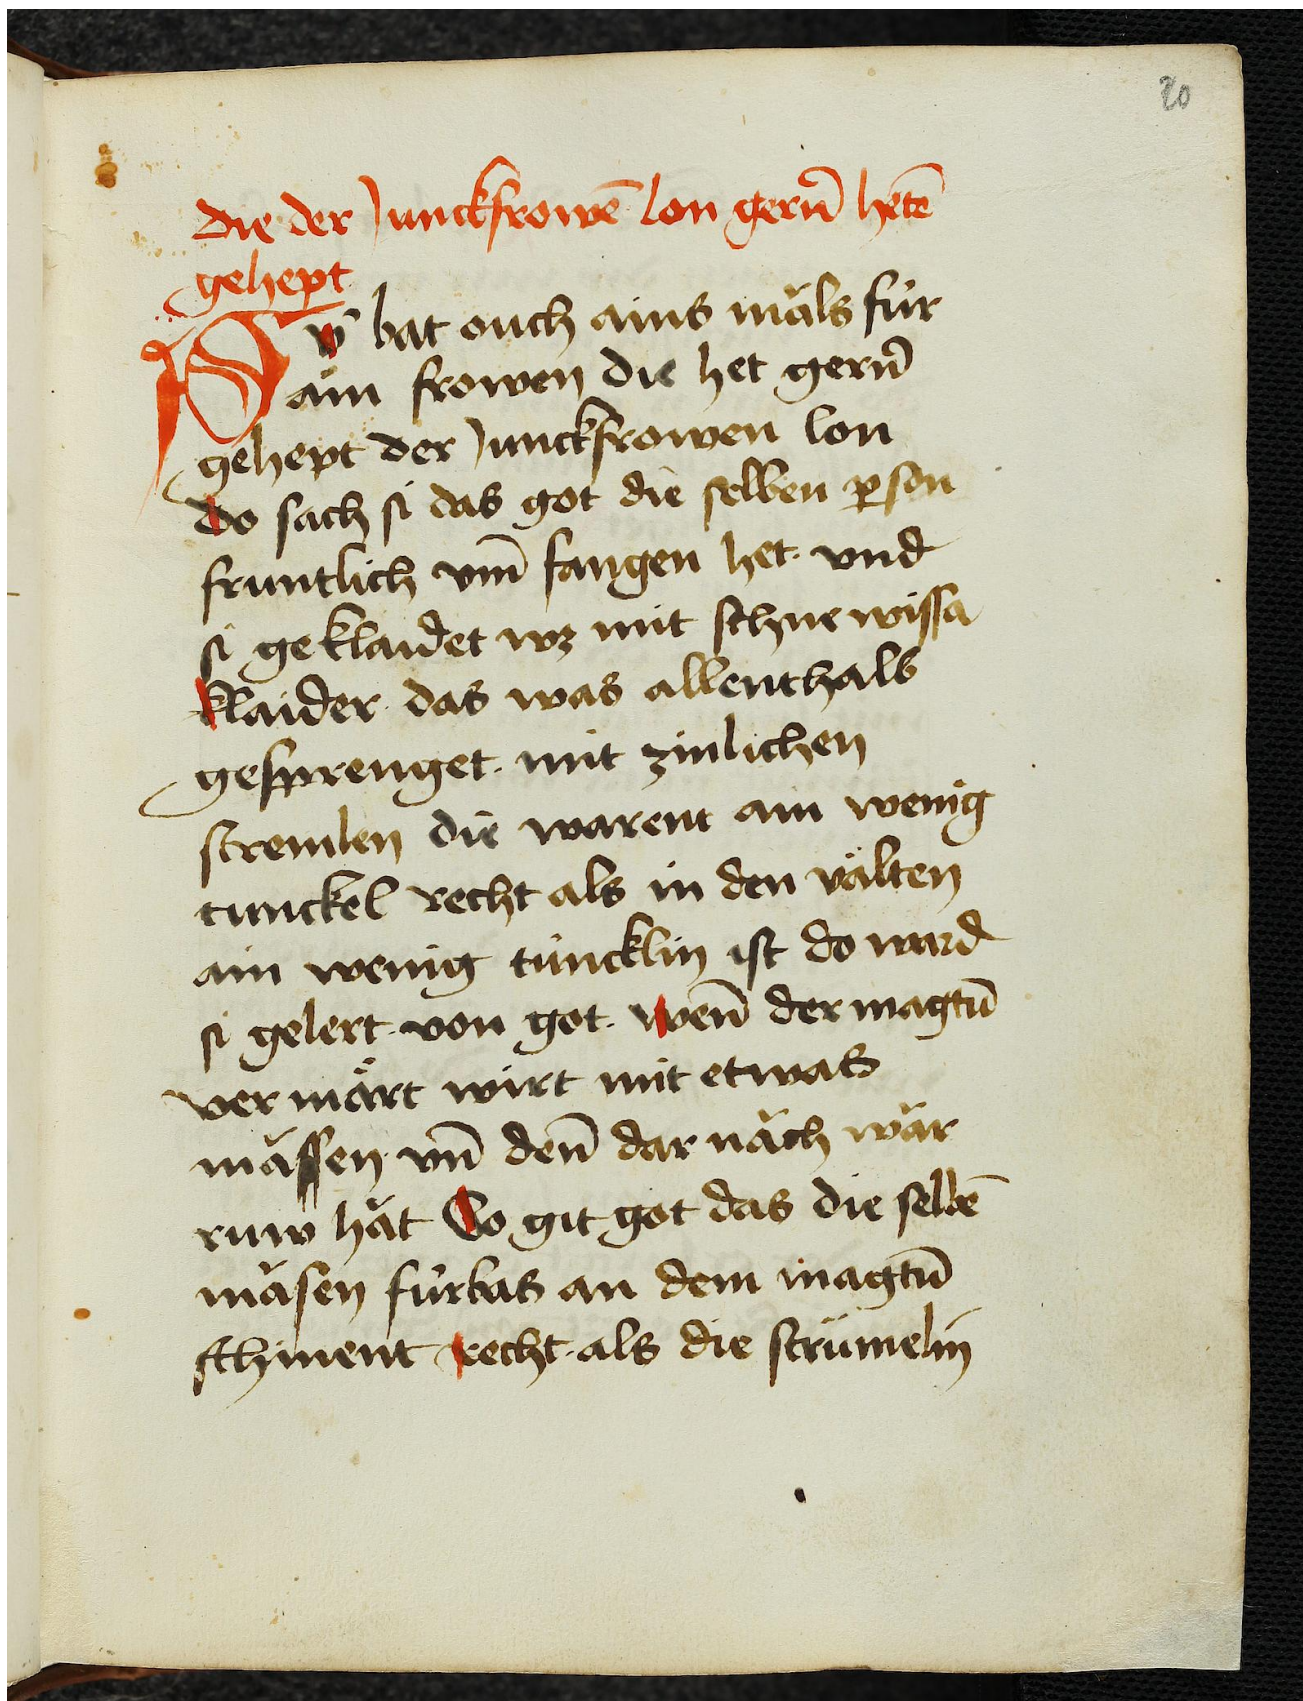 20
die der Junckfrowē lon gern̄ hetē
gehept
Sÿ bat ouch ains mäls für
ain frowen die het gern̄
gehept der Junckfrowen lon
do sach si das got die selben ꝑson
fruntlich vm̄ fangen het. vnd
si geklaidet wz mit schne wissa
klaider. das was allenthalb
gesprenget. mit zinlichen
stremlen die warent ain wenig
tunckel recht als in den välten
ain wenig tüncklin ist do ward
si gelert. von got. wen̄ der magtū
ver märt wirt mit etwas
mässen. vn̄ den̄ dar näch wär
ruw hät So git got das die selbē
mäsen fürbas an dem magtū
schinent recht. als die strümelin